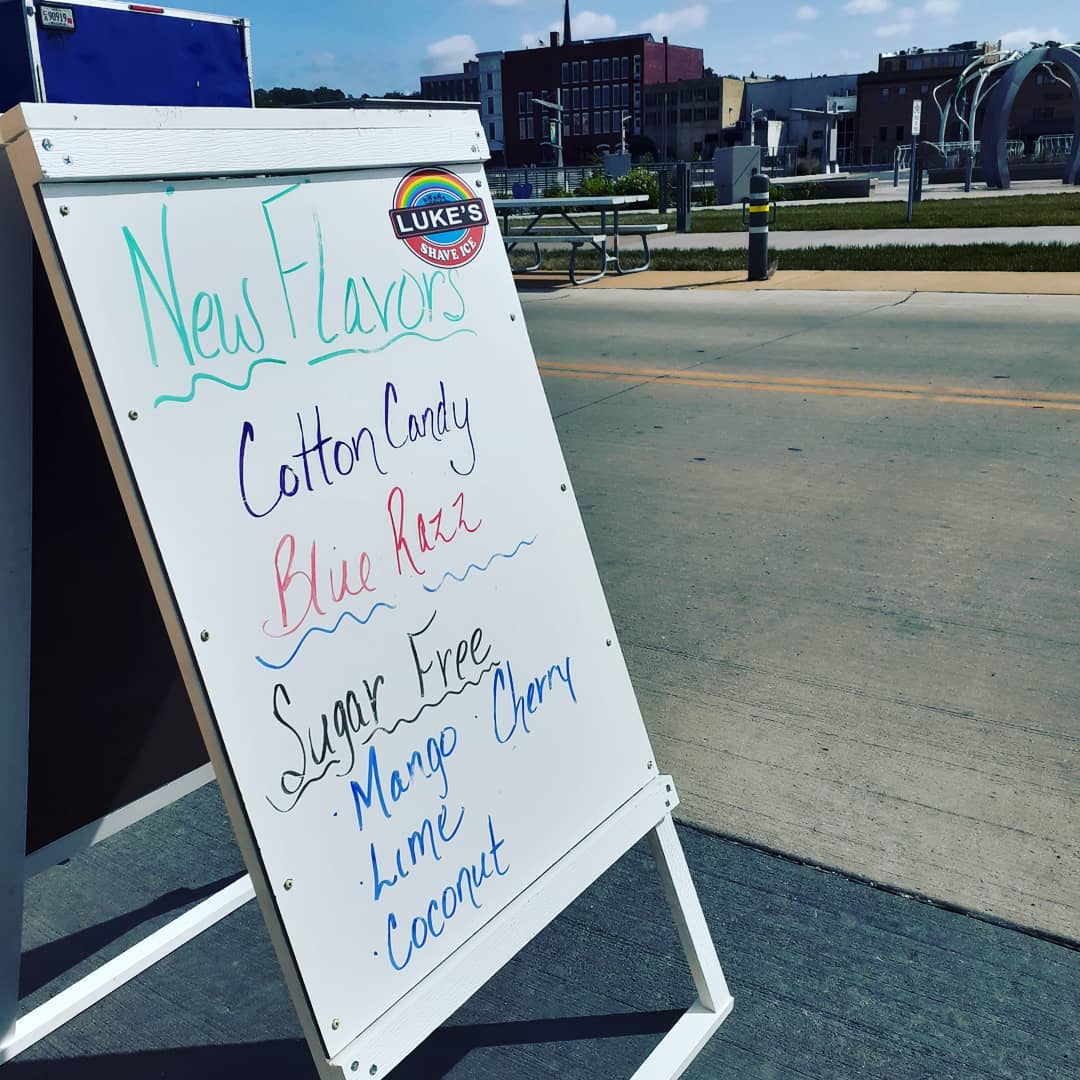 90919
LUKE'S
SHAVE ICE
New Flavors
Cotton Candy
Blue Razz
Sugar Free
· Mango · Cherry
· Lime
· Coconut